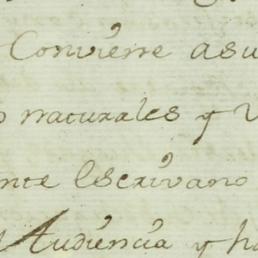 Convierre asu
o naturales y V
nte Escrivano
l Audiencia y ha